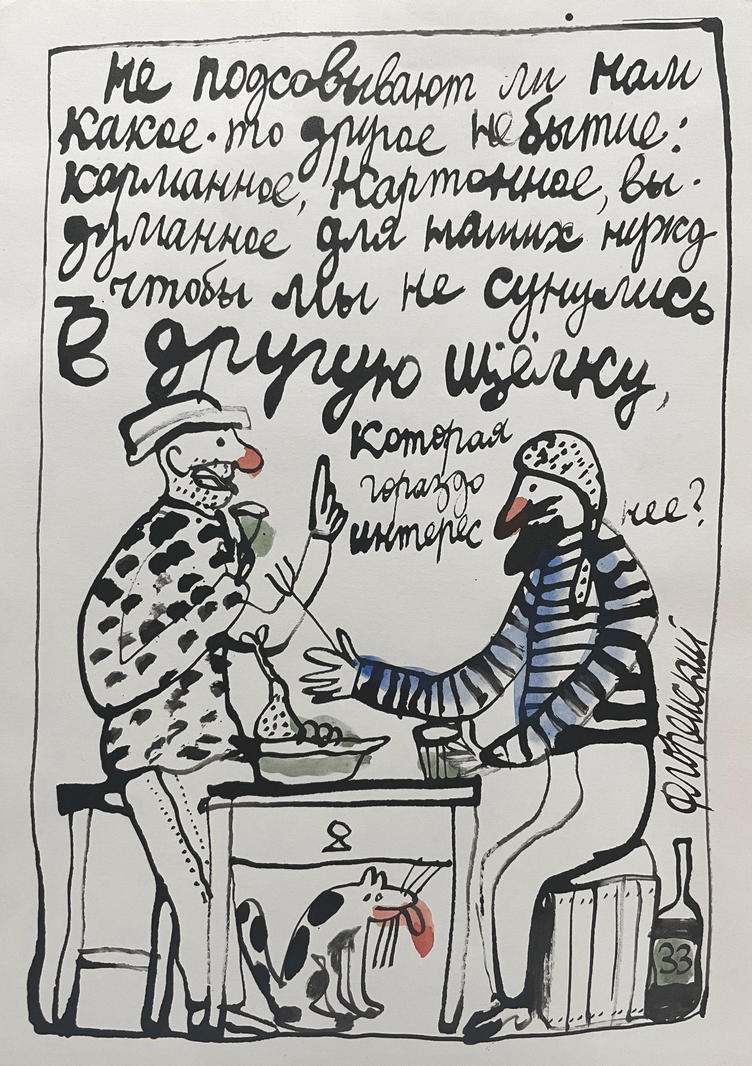 не подсовывают ли нам
какое-то другое небытие:
карманное, картонное, вы-
думанное для наших нужд
– чтобы мы не сунулись
в другую щёлку,
которая
гораздо
интерес
нее?
Флоренский
33